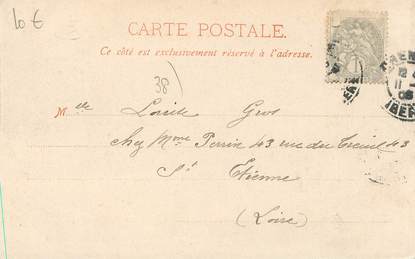 10 €
CARTE POSTALE.
Ce côté est exclusivement réservé à l'adresse.
38)
Mlle Gros
chez Mme Perrin 43 rue du Treuil 43
St Etienne
(Loire)